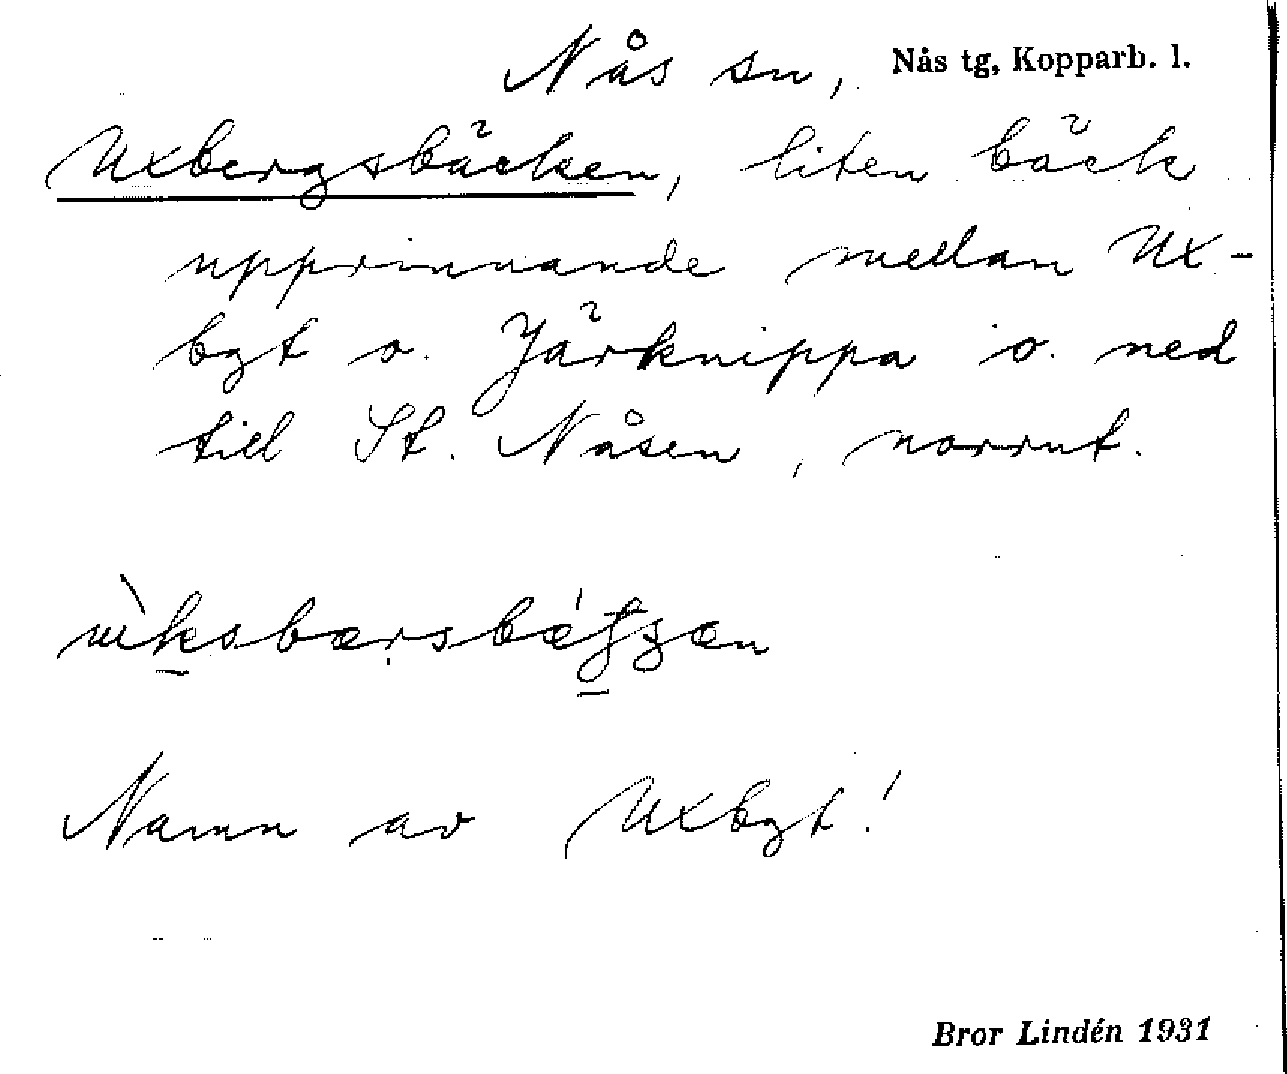 Nås sn, Nås tg, Kopparb. l.
Uxbergsbäcken, liten bäck
upprinnande mellan Ux-
bgt o. Järknippa o. ned
till St. Nåsen, norrut.
Namn av Uxbgt!
Bror Lindén 1931